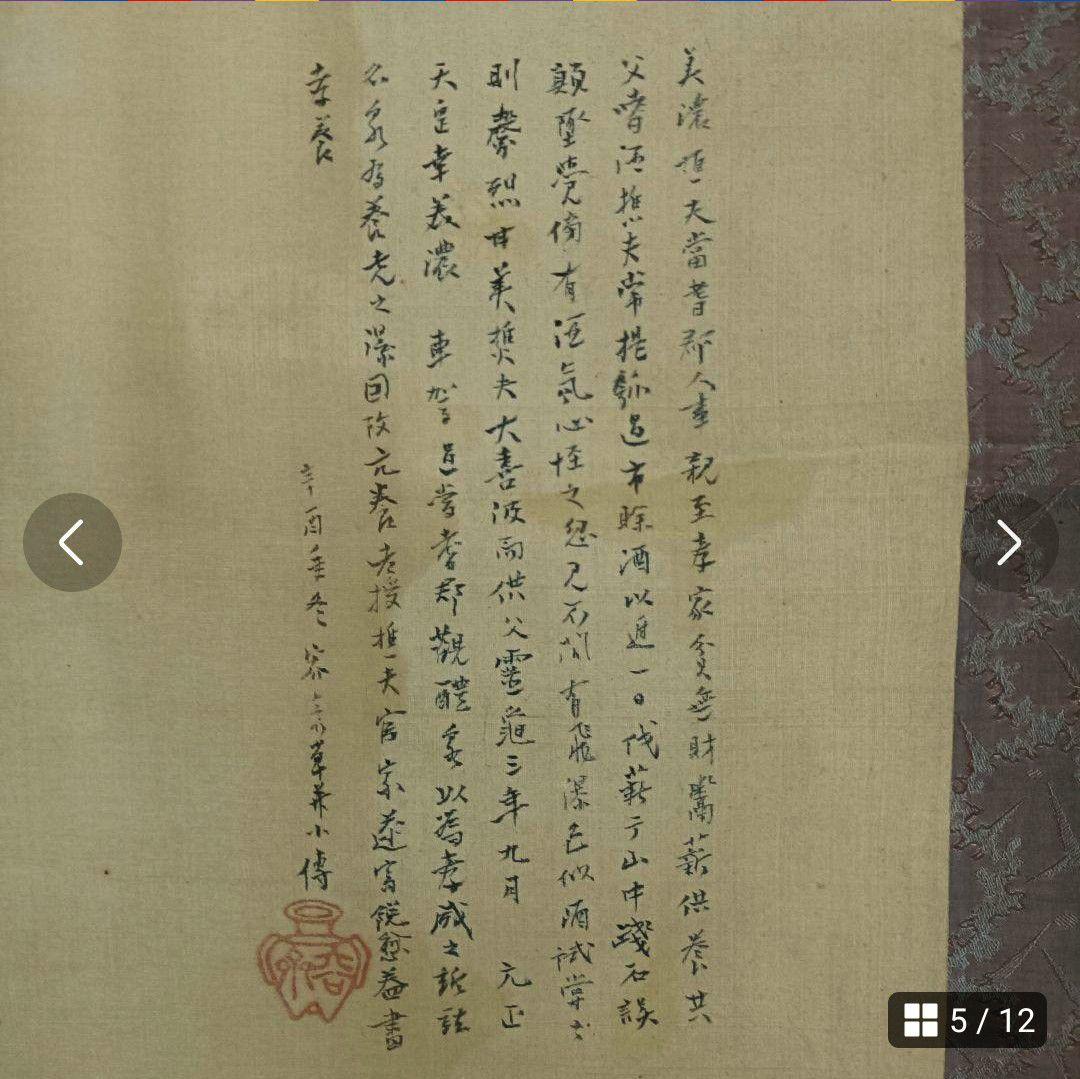 美濃樵夫當耆郡人事親至孝家貧無財鬻薪供養其
父嗜酒樵夫常提瓢過市賖酒以進一日伐薪于山中踐石誤
顛墜覺傍有酒氣心恠之忽見石間有飛瀑色似酒試嘗之
則馨烈甘美樵夫大喜汲而供父靈龜三年九月 元正
天皇幸美濃 車駕過當耆郡觀醴泉以為孝感之所致
名泉為養老之瀑因改元養老授樵夫官家遂富饒愈益書
孝養
辛酉年冬 容斎草并小傳
5 / 12